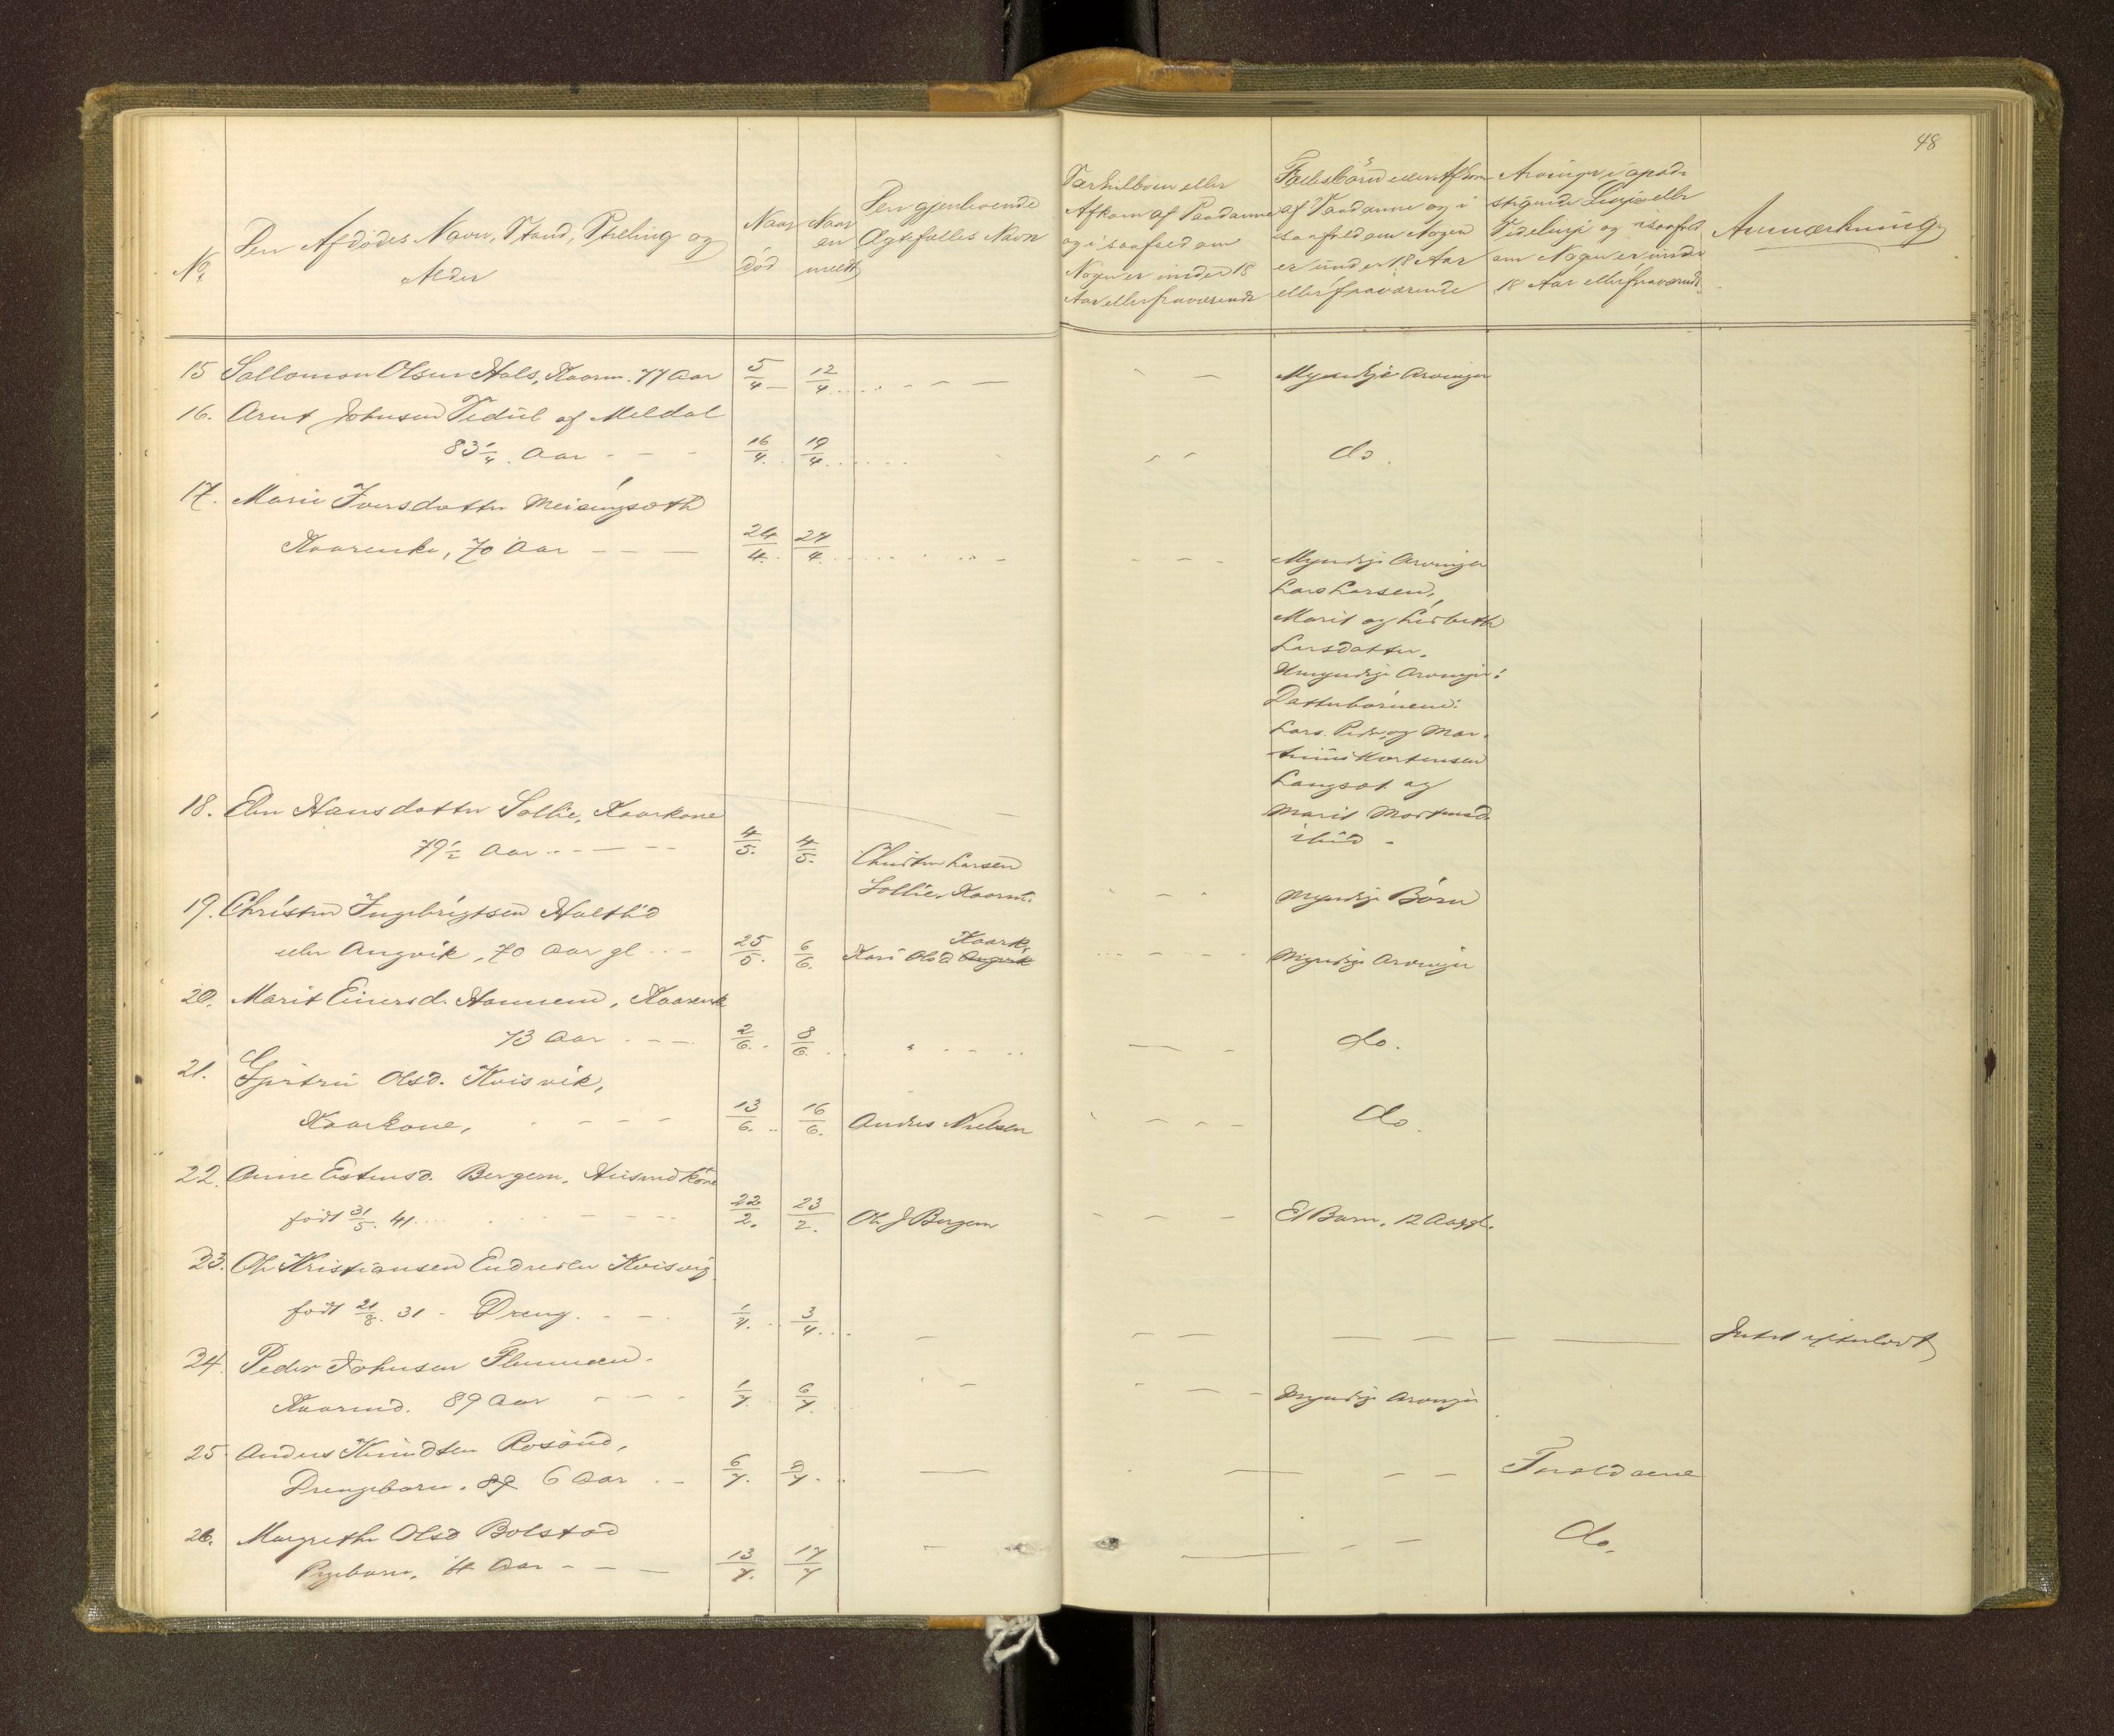 48
No.
Den Afdødes Navn, Stand, Stilling og
Alder
Naar
død
Naar
an
meldt
Den gjenlevende
Ægtefælles Navn
Særkulbørn eller
Afkom af Saadanne
og i saafald om
Nogen er under 18
Aar eller fraværende
Fællesbørn eller Afkom
af Saadanne og i
saafald om Nogen
er under 18 Aar
eller fraværende
Arvinger i opad-
stigende Linje eller
Sidelinje og i saafald
om Nogen er under
18 Aar eller fraværende
Anmærkning
15 Sallomon Olsen Hals, Kaarm. 77 Aar 5/4 12/4 Myndige Arvinger
16. Arnt Johnsen Vedul af Meldal
83 1/4 Aar 16/4. 19/4. do.
17. Marie Iversdatter Meisingsæth
Kaarenke, 70 Aar 24/4. 27/4. Myndige Arvinger
Lars Larsen,
Marit og Lisbeth
Larsdatter.
Umyndige Arvinger:
Datterbørnene:
Lars, Peder og Mar-
Mortensen
Langsæt og
Marit Mortensd.
ibid
18. Elen Hansdatter Sollie, Kaarkone
79 1/2 Aar 4/5. 4/5. Christen Larsen
Sollie, Kaarm. Myndige Børn
19. Christen Ingebrigtsen Holtlid
eller Angvik, 70 Aar gl 25/5. 6/6. Kari Olsd Angvik Kaark. Myndige Arvinger
20. Marit Einersd. Hannem, Kaarenk
73 Aar 2/6. 8/6. do.
21. Gjertru Olsd. Kvisvik,
Kaarkone, 13/6. 16/6. Anders Nielsen do.
22. Anne Estensd. Bergem, Husmdkone
født 31/5. 41 22/2. 23/2. Ole J Bergem Et Barn, 12 Aar gl.
23. Ole Kristiansen Endresler Kvisvig
født 21/8. 31 - Dreng. 1/4. 3/4. Intet efterladt
24. Peder Johnsen Flemmen.
Kaarmd. 89 Aar 1/7. 6/7. Myndige Arvinger
25. Anders Knudsen Rosand,
Drengebarn. 89 6 Aar 6/7. 9/7. Forældrene
26. Margrethe Olsd Bolstad
Pigebarn, 4 Aar 13/7. 17/7 do.